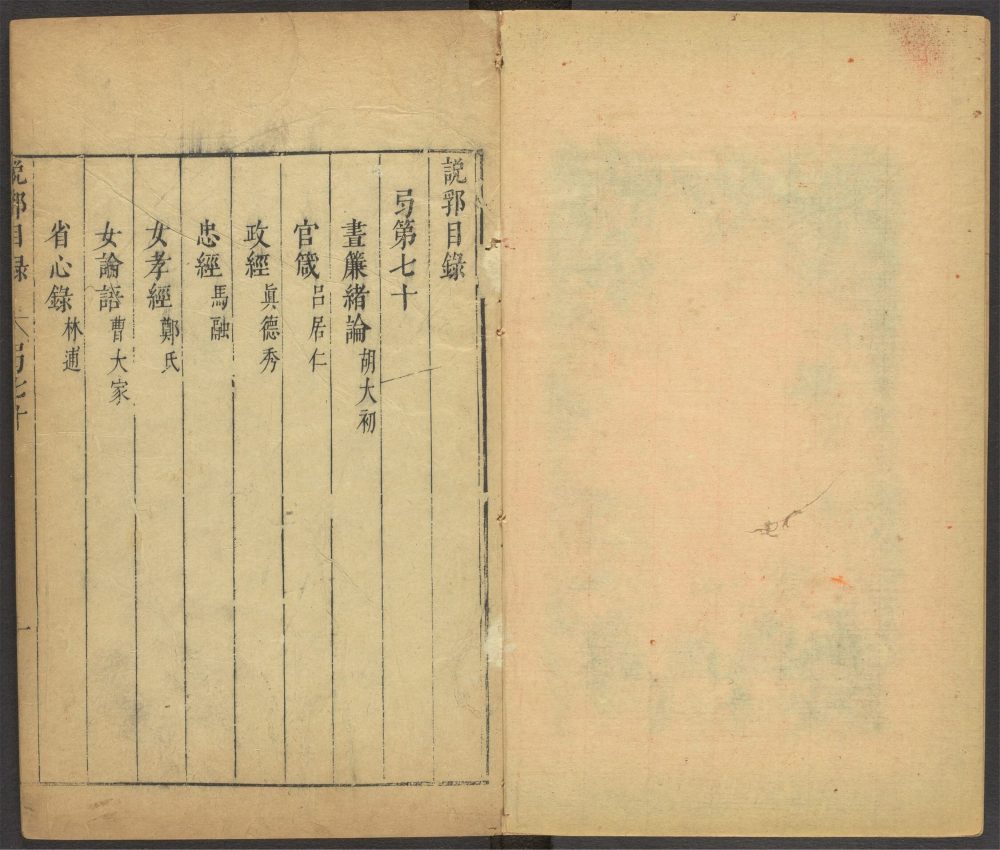 說郛目錄
弓第七十
晝簾緒論 胡大初
官箴 吕居仁
政經 眞德秀
忠經 馬融
女孝經 鄭氏
女論語 曹大家
省心錄 林逋
說郛目録 弓七十 一